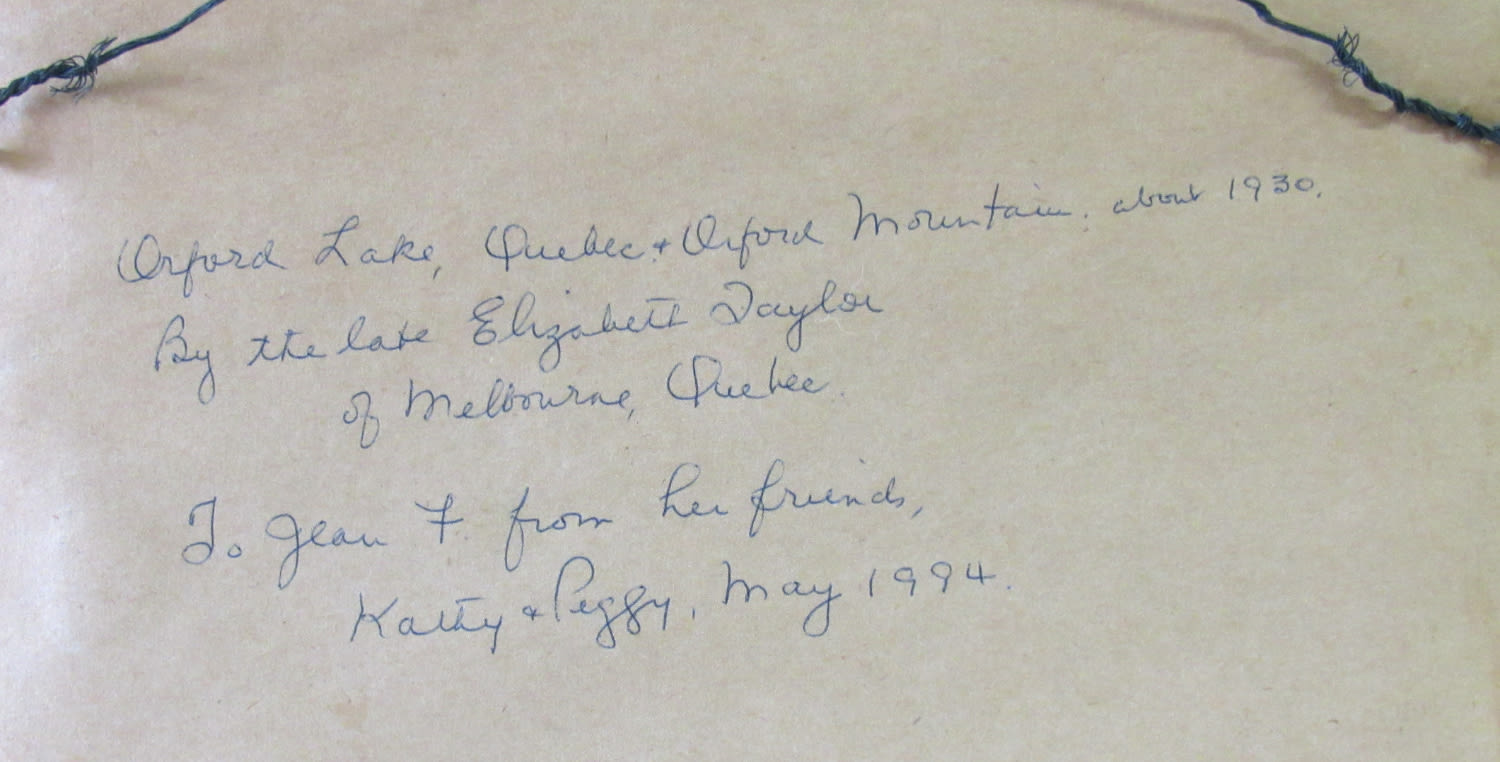 Orford Lake, Quebec & Orford Mountain. about 1930.
By the late Elizabeth Taylor
of Melbourne, Quebec.
To Jean F. from her friends,
Kathy & Peggy, May 1994.